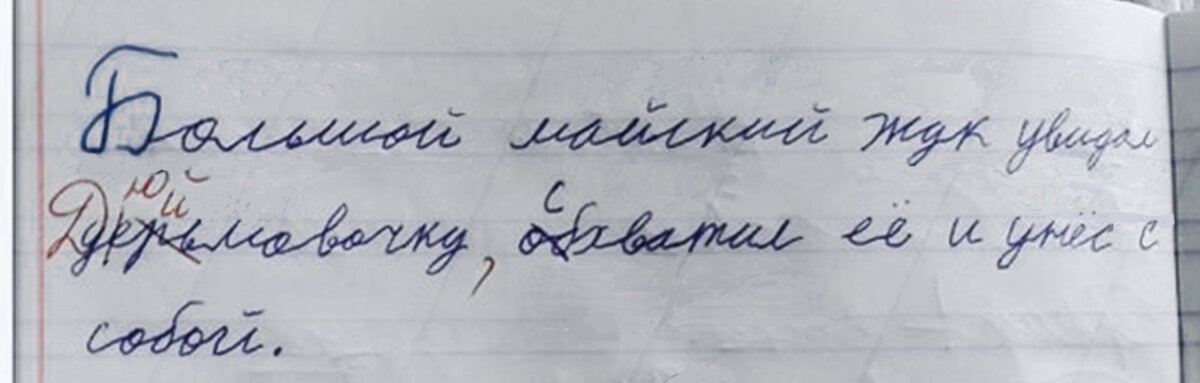 Большой майский жук увидал
Дюймовочку, схватил её и унёс с
собой.